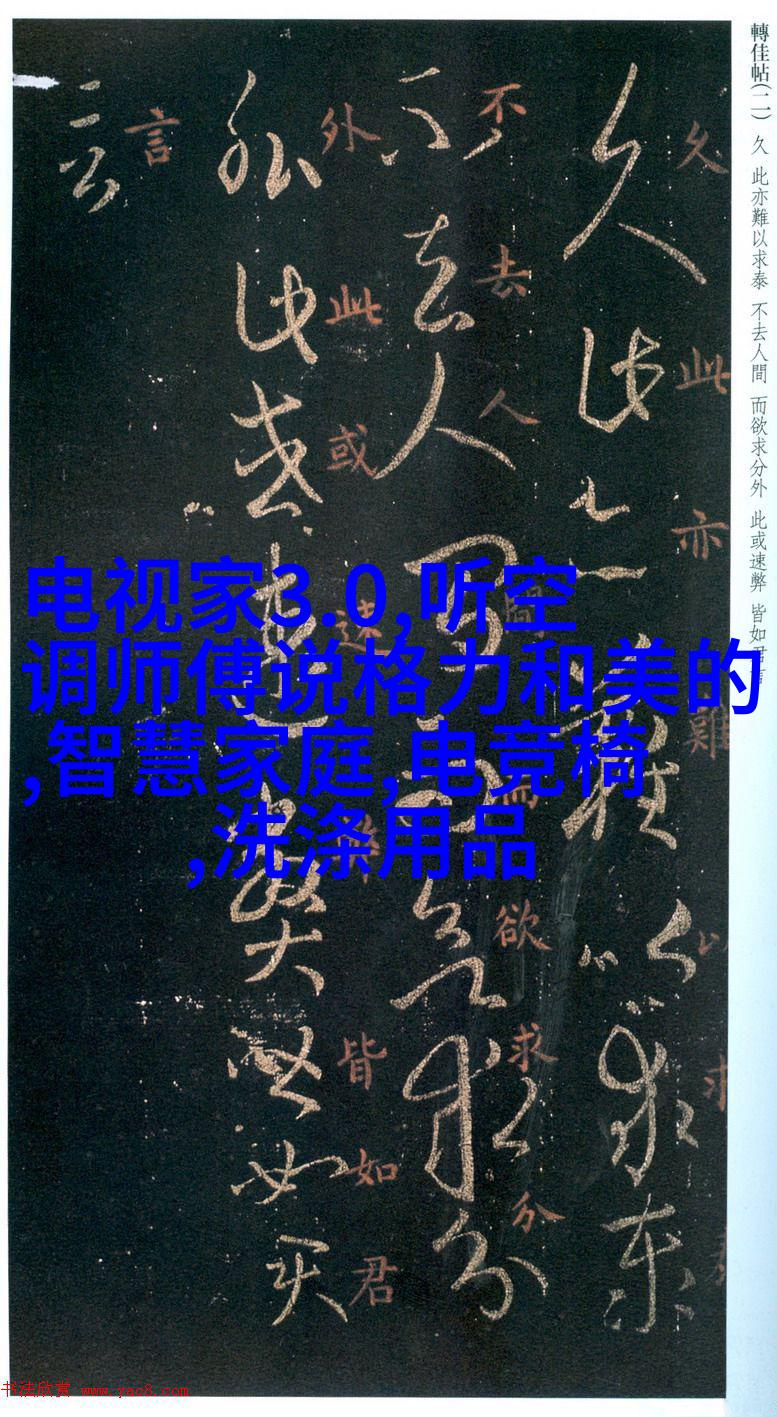 轉佳帖(二) 久 此亦難以求泰 不去人間 而欲求分外 此或速弊 皆如君言
久此亦難以求泰
不去人間而欲求分
外此或速弊皆如君
言
久此亦難以求
不去人間而欲求分
外此或速弊皆如君
言
电视家3.0,听空
调师傅说格力和美的
,智慧家庭,电竞椅
,洗涤用品
书法欣赏 www.yac8.com